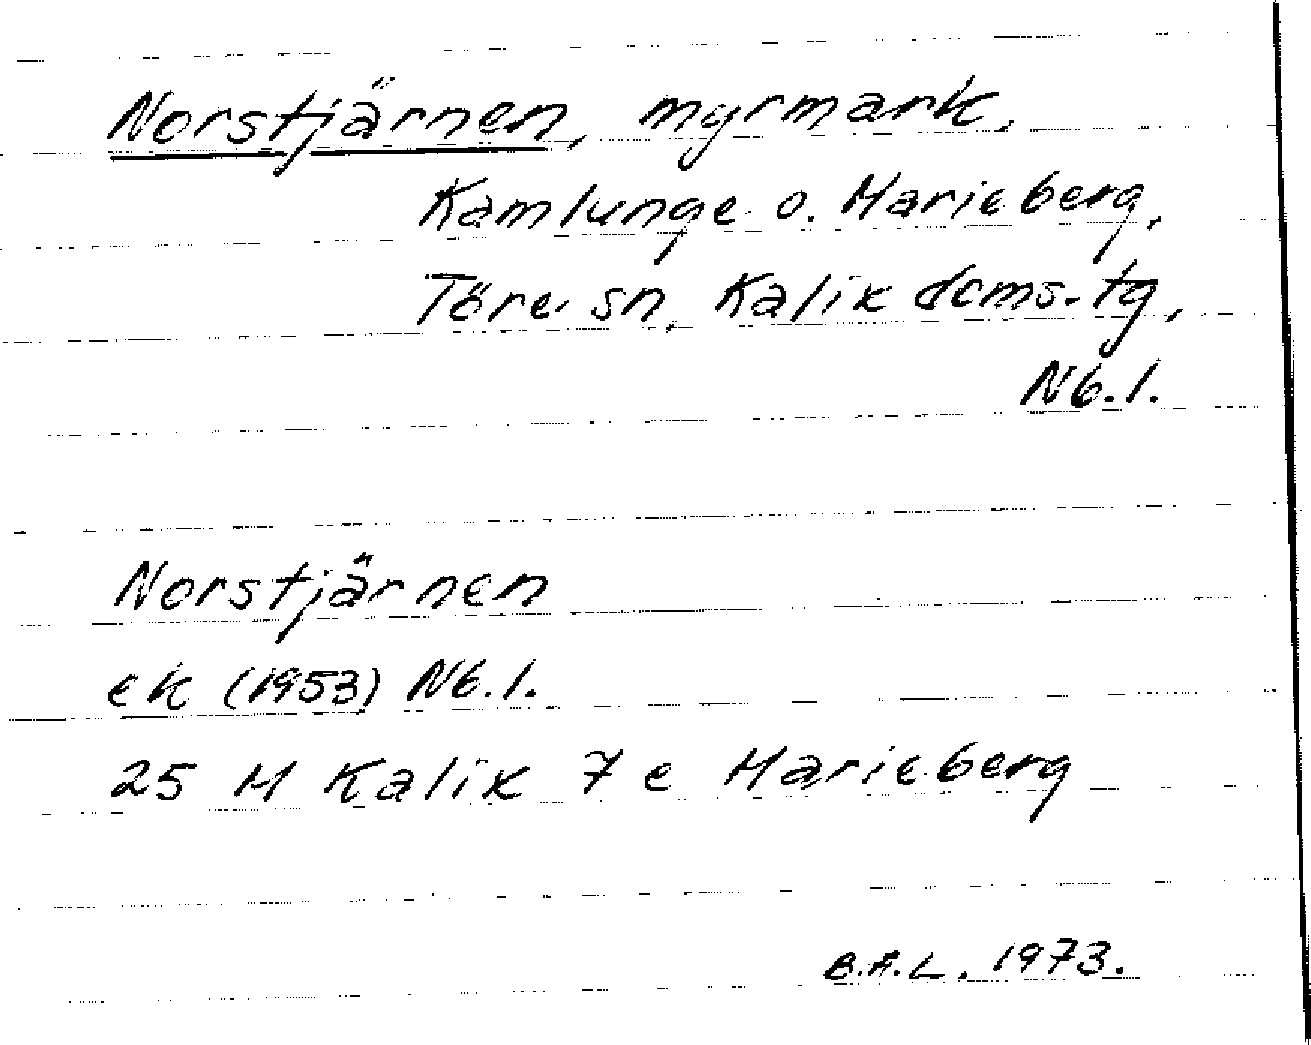 Norstjärnen, myrmark,
Kamlunge o. Marieberg,
Töre sn, Kalix doms. tg,
Nb. l.
Norstjärnen
ek (1953) Nb. l.
25 M Kalix 7 e Marieberg
B.Å.L. 1973.